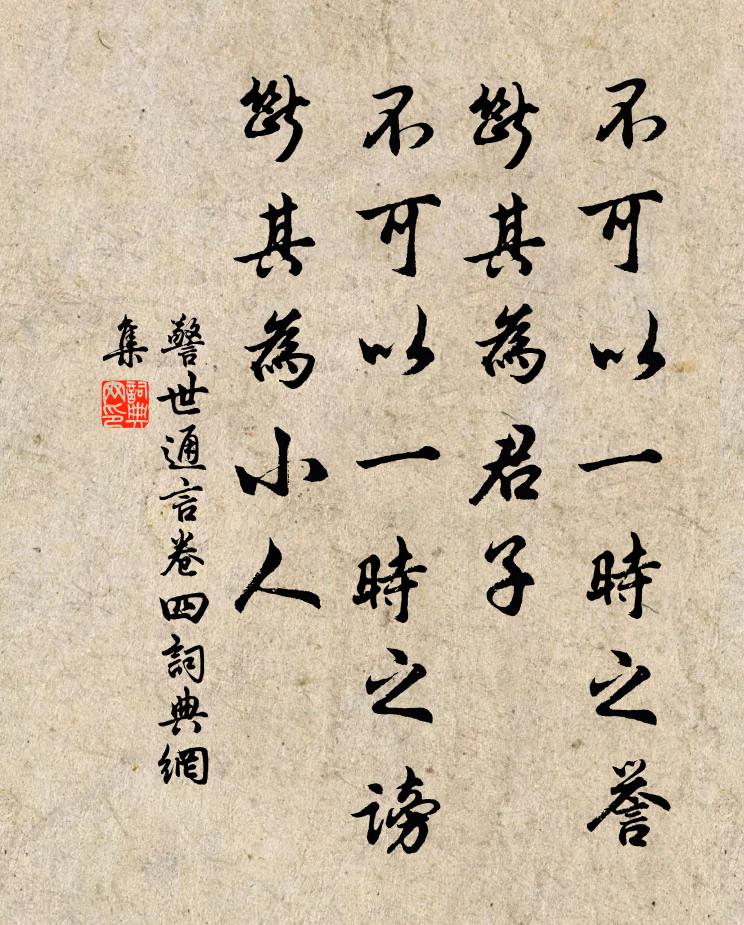 不可以一時之譽
斷其為君子
不可以一時之謗
斷其為小人
警世通言卷四詞典網
集
詞典
网印